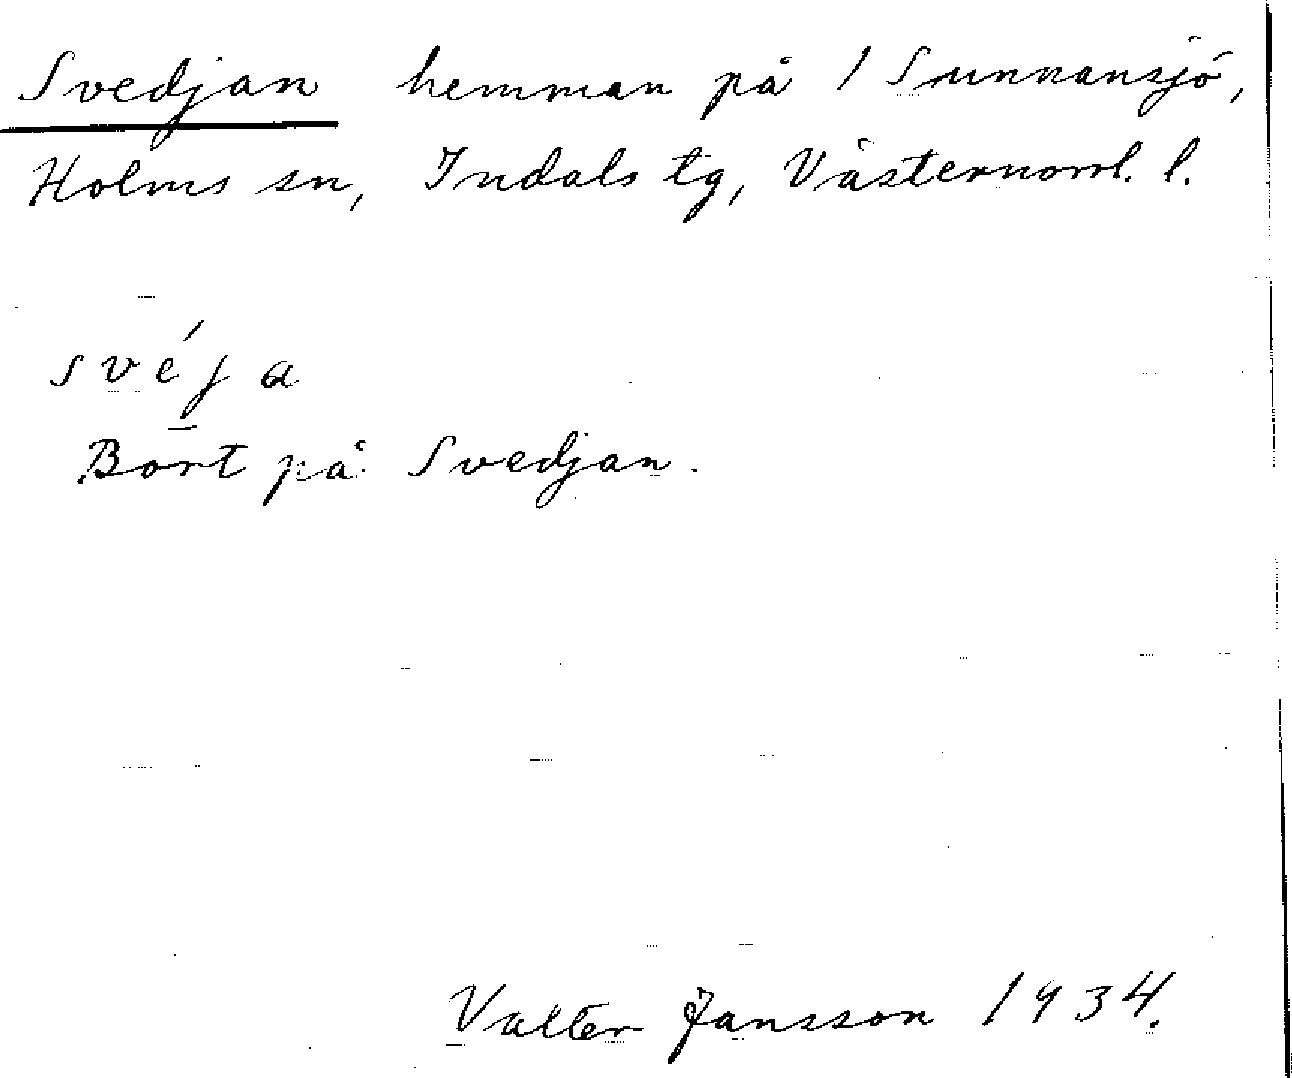 Svedjan hemman på 1 Sunnansjö,
Holms sn, Indals tg, Västernorrl. l.
svéja
Bort på Svedjan.
Valter Jansson 1934.